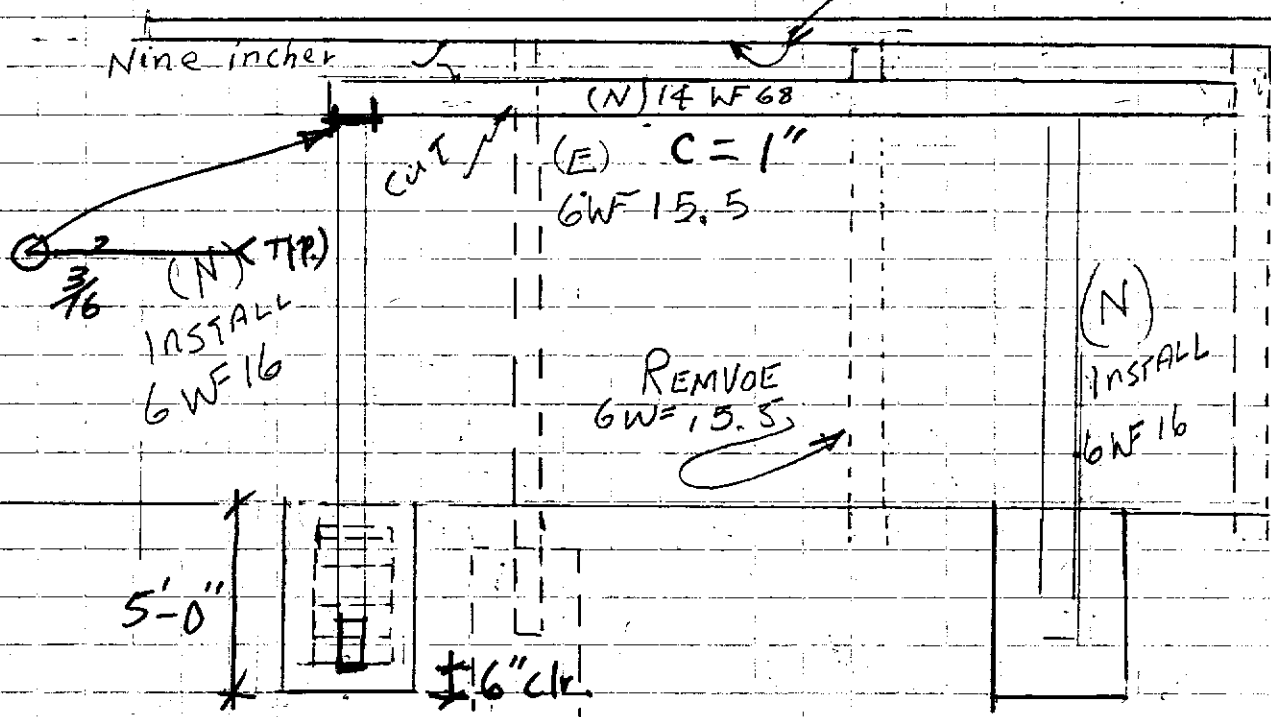 Nine incher
(N) 14 WF 68
cuT
(E) C = 1"
6WF 15.5
2 TYP.)
3/16
(N)
INSTALL
6 WF 16
REMVOE
6WF 15.5
(N)
INSTALL
6 WF 16
5'-0"
6" clr.